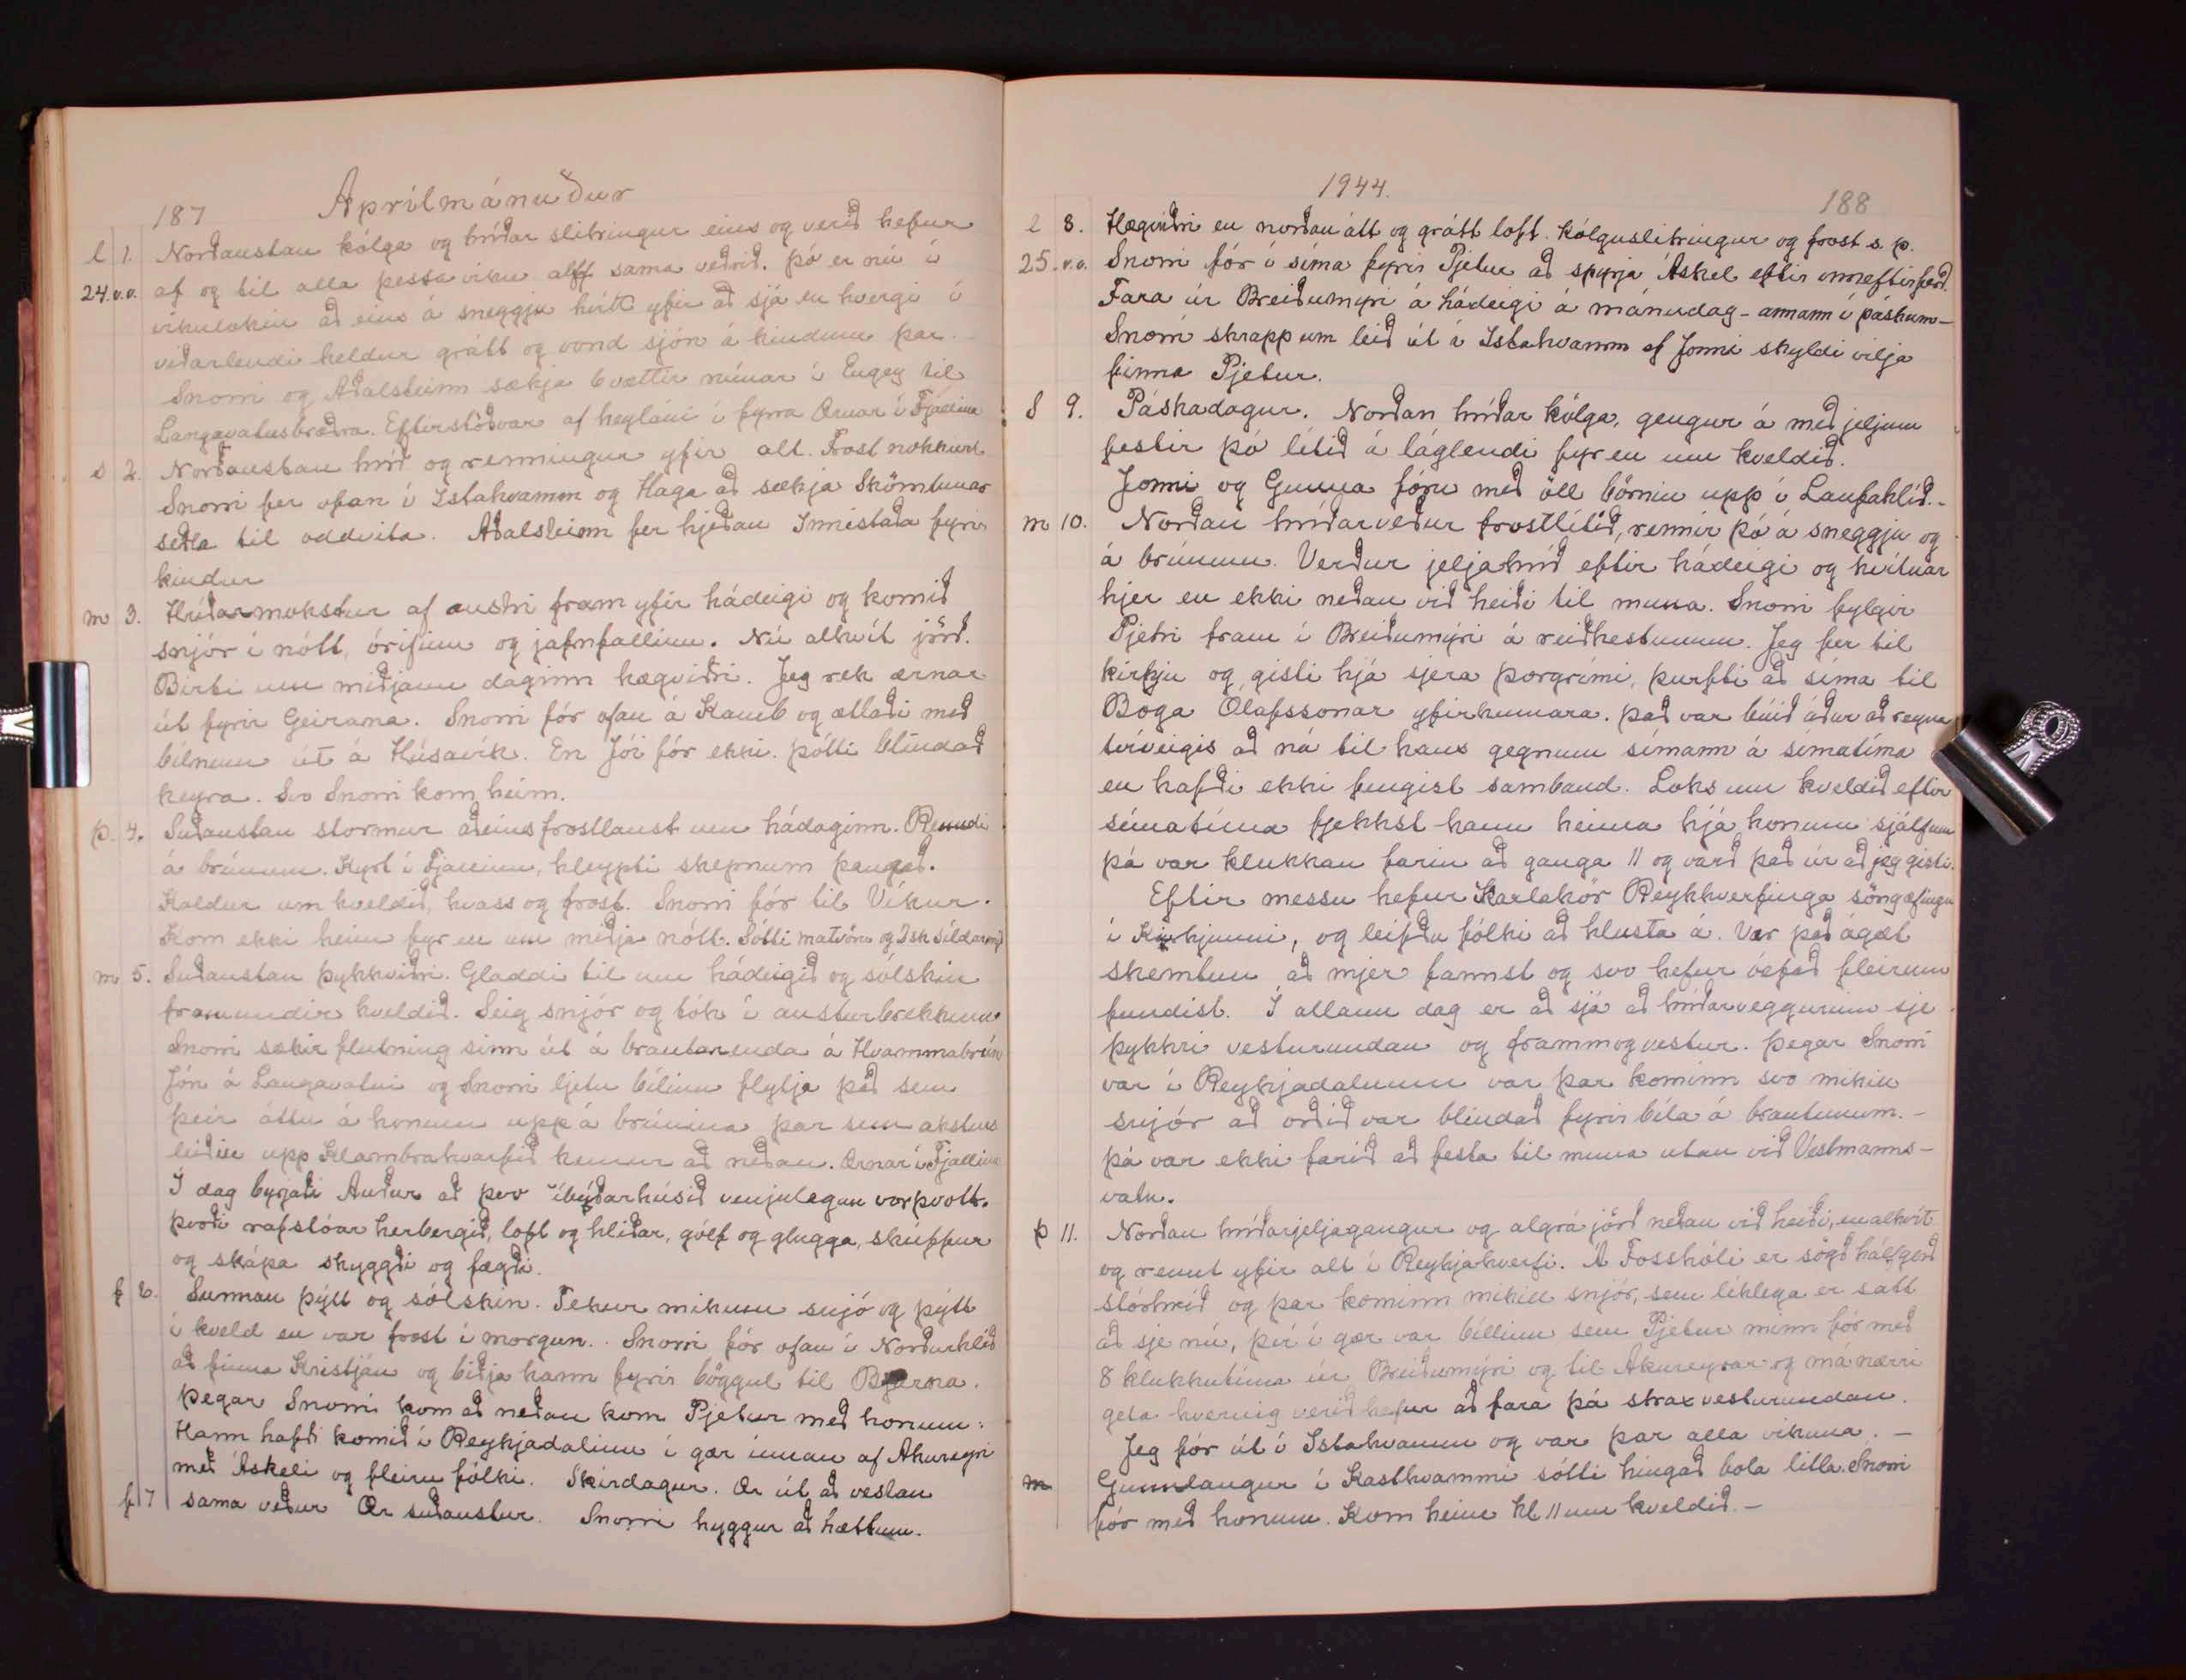 187 Aprílmánuður
l 1. Norðaustan kólga og hríðar slitringur eins og verið hefur
24.v.v. af og til alla þessa viku alltf sama veðrið. Þó er nú í
vikulokin að eins á sneggju hvítt yfir að sjá en hvergi í
viðarlendi heldur grátt og vond sjón á kindum þar.
Snorri og Aðalsteinn sækja 6 vættir mínar í Engey til
Langavatnsbræðra. Eftirstöðvar af heyláni í fyrra Ærnar í Fjallinu
s 2. Norðaustan hríð og renningur yfir alt. Frost nokkurt
Snorri fer ofan í Ystahvamm og Haga að sækja Skömtunar
seðla til oddvita. Aðalsteinn fer hjeðan Innistaða fyrir
kindur
m 3. Hríðarmokstur af austri fram yfir hádeigi og komið
snjór í nótt, órifinn og jafnfallinn. Nú alhvít jörð.
Birti um miðjann daginn hægviðri. Jeg rek ærnar
út fyrir Geirana. Snorri fór ofan á Kamb og ætlaði með
bílnum út á Húsavík. En Jói fór ekki. Þótti blindað
keyra. Svo Snorri kom heim.
þ. 4. Suðaustan stormur aðeins frostlaust um hádaginn. Renndi
á brúnum. Kyrt í Fjallinu, hleypti skepnum þangað.
Kaldur um kveldið, hvass og frost. Snorri fór til Víkur.
Kom ekki heim fyr en um miðja nótt. Sótti matvöru og 1sk síldarmjöl
m 5. Suðaustan þykkviðri. Gladdi til um hádeigið og sólskin
framundir kveldið. Seig snjór og tók í austurbrekkum
Snorri sækir flutning sinn út á brautarenda á Hvammabrún
Jón á Langavatni og Snorri ljetu bílinn flytja það sem
þeir áttu á honum upp á brúnina þar sem aksturs
leiðin upp Klambrahvarfið kemur að neðan. Ærnar í Fjallinu
Í dag byrjaði Auður að þvo íbúðarhúsið venjulegan vorþvott.
Þvoði rafstóar herbergið, loft og hliðar, gólf og glugga, skúffur
og skápa skyggði og fægði.
f 6. Sunnan þýtt og sólskin. Tekur mikinn snjó og þýtt
í kveld en var frost í morgun. Snorri fór ofan í Norðurhlíð
að finna Kristján og biðja hann fyrir böggul til Bjarna.
Þegar Snorri kom að neðan kom Pjetur með honum.
Hann hafði komið í Reykjadalinn í gær innan af Akureyri
með Áskeli og fleiru fólki. Skírdagur. Ær út að vestan
f 7 sama veður Ær suðaustur. Snorri hyggur að hættum.
1944. 188
l 8. Hægviðri en norðan átt og grátt loft. Kólguslitringur og frost s. p.
25.v.v. Snorri fór í síma fyrir Pjetur að spyrja Áskel eftir inneftirferð.
Fara úr Breiðumýri á hádeigi á mánudag - annann í páskum -
Snorri skrapp um leið út í Ystahvamm ef Jonni skyldi vilja
finna Pjetur.
S 9. Páskadagur. Norðan hríðar kólga, gengur á með jeljum
festir þó lítið á láglendi fyr en um kveldið.
Jonni og Gunna fóru með öll börnin upp í Laufahlíð.
m 10. Norðan hríðarveður frostlítið, rennir þó á sneggju og
á brúnum. Verður jeljahríð eftir hádeigi og hvítnar
hjer en ekki neðan við heiði til muna. Snorri fylgir
Pjetri fram í Breiðumýri á reiðhestunum. Jeg fer til
kirkju og gisti hjá sjera Þorgrími, þurfti að síma til
Boga Ólafssonar yfirkennara. Það var búið áður að reyna
tvíveigis að ná til hans gegnum símann á símatíma
en hafði ekki fengist samband. Loks um kveldið eftir
símatíma fjekkst hann heima hjá honum sjálfum
þá var klukkan farin að ganga 11 og varð það úr að jeg gisti.
Eftir messu hefur Karlakór Reykhverfinga söngæfingu
í Kirkjunni, og leifðu fólki að hlusta á. Var það ágæt
skemtun að mjer fannst og svo hefur óefað fleirum
fundist. Í allann dag er að sjá að hríðarveggurinn sje
þykkri vesturundan og frammogvestur. Þegar Snorri
var í Reykjadalnum var þar kominn svo mikill
snjór að orðið var blindað fyrir bíla á brautunum. -
Þá var ekki farið að festa til muna utan við Vestmanns-
vatn.
þ 11. Norðan hríðarjeljagangur og algrá jörð neðan við heiði, en alhvít
og rennt yfir alt í Reykjahverfi. Á Fosshóli er sögð hálfgerð
stórhríð og þar kominn mikill snjór, sem líklega er satt
að sje nú, því í gær var bíllinn sem Pjetur minn fór með
8 klukkutíma úr Breiðumýri og til Akureyrar og má nærri
geta hvernig verið hefur að fara þá strax vesturundan.
Jeg fór út í Ystahvamm og var þar alla vikuna. -
m Gunnlaugur í Kasthvammi sótti hingað bola litla. Snorri
fór með honum. Kom heim kl 11 um kveldið. -